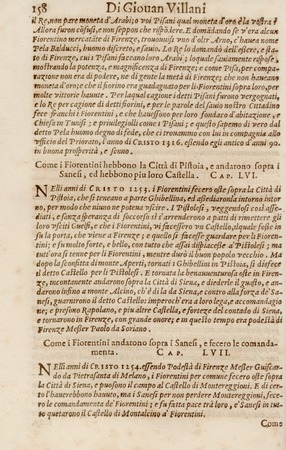 158 Di Giouan Villani
il Re, non pare moneta d'Arabi; o voi Pisani qual moneta d'oro è la vostra?
Allora furon cõfusi, e non seppon che rispõdere. E domandando se v'era alcun
Fiorentino mercatāte di Firenze, trouossi vno d'oltr' Arno, c'hauea nome
Pela Balducci, huomo discreto, e sauio. Lo Re lo domandò dell'essere, e stato
di Firenze, cui i Pisani faceano loro Arabi; loquale sauiamente rispose,
mostrando la potenza, e magnificenza di Firenze; e come Pisa, per comparazione
non era di podere, ne di gente la metà di Firenze; che non haueano
moneta d'oro; e che il fiorino era guadagnato per li Fiorentini sopra loro, per
molte vittorie hauute. Per laqual cagione i detti Pisani furono vergognati,
e lo Re per cagione di detti fiorini, e per le parole del sauio nostro Cittadino
fece franchi i Fiorentini, e che hauessono per loro fondaco d'abitazione, e
Chiesa in Tunisi; e priuilegiolli come i Pisani; e questo sapemo di vero dal
detto Pela huomo degno di fede, che ci trouammo con lui in compagnia allo
vficio del Priorato, l'anno di CRISTO 1316. essendo egli antico d'anni 90.
in buona prosperità, e senno.
Come i Fiorentini hebbono la Città di Pistoia, e andarono sopra i
Sanesi, ed hebbono più loro Castella. CAP. LVI.
NElli anni di CRISTO 1253. i Fiorentini fecero oste sopra la Città di
Pistoia, che si teneano a parte Ghibellina, ed assediaronla intorno intorno,
per modo che niuno ne potea vscire. I Pistolesi, veggendosi così assediati,
e sanza speranza di soccorso sì s'arrenderono a patti di rimettere gli
loro vsciti Guelfi, che i Fiorentini, vi facessero vn Castello, ilquale fosse in
su la porta, che viene a Firenze; e quello si facesse guardare per li Fiorentini;
e fu molto forte, e bello, con tutto che assai dispiacesse a' Pistolesi; ma
tutt'ora si tenne per li Fiorentini, mentre durò il buon popolo vecchio. Ma
dopo la sconfitta di monte Aperti, tornati i Ghibellini in Pistoia, si disfece
il detto Castello per li Pistolesi. E tornata la benauuenturosa oste in Firenze,
incontanente andarono sopra la Città di Siena, e diederle il guasto, e andarono
infino a monte Alcino, ch'è di là da Siena, e contro alla forza de' Sanesi,
guarnirono il detto Castello: imperoch'era a loro lega, e accomandagione;
e presono Rapolano, e più altre Castella, e fortezze del contado di Siena, e
tornarono in Firenze, con grande onore; e in questo tempo era podestà di
Firenze Messer Paolo da Soriano.
Come i Fiorentini andarono sopra i Sanesi, e fecero le comandamenta.
CAP. LVII.
NElli anni di CRISTO 1254. essendo Podestà di Firenze Messer Guiscardo
da Pietrasanta di Melano, i Fiorentini per comune fecero oste sopra
la Città di Siena, e puosono il campo al Castello di Montereggioni. E di certo
l'hauerebbono hauuto, ma i Sanesi per non perdere Montereggioni, fecero
le comandamenta de' Fiorentini; e fu fatta pace trà loro, e' Sanesi in tutto
quetarono il Castello di Montalcino a' Fiorentini.
Come